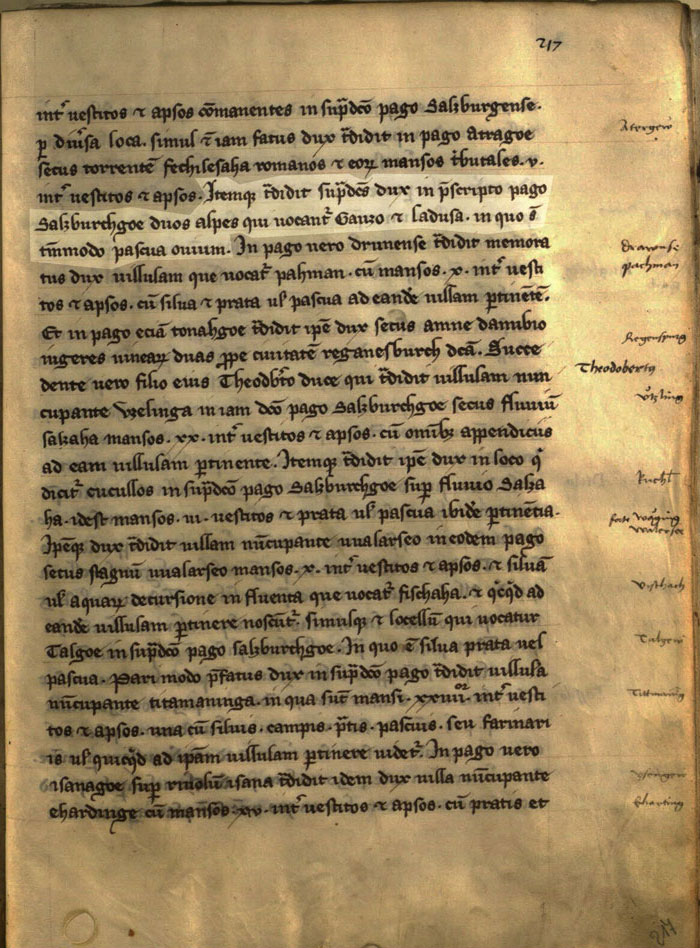 217
int᷑ uestitos ⁊ apsos cōmanentes in sup̄dc̄o pago Salzburgense.
ꝑ diu͛sa loca. simul ⁊ iam fatus dux t͛didit in pago atragoe
Atergew
secus torrentē fechilesaha romanos ⁊ eoꝝ mansos t͛butales. v.
int᷑ uestitos ⁊ apsos. Itemqꝫ t͛didit sup̄dc̄s dux in p̄scripto pago
Salzburchgoe duos alpes qui uocant᷑ Gauzo ⁊ ladusa. in quo s̄
tm̄modo pascua ouium. In pago uero drunense t͛didit memora
tus dux uillulam que uocat᷑ pahman. cū mansos. x. int᷑ uesti
pachman
tos ⁊ apsos. cū silua ⁊ prata ul̓ pascua ad eande uillam ꝑtinētē.
Et in pago eciā tonahgoe t͛didit ip̄e dux secus amne danubio
iugeres uineaꝝ duas ꝓpe ciuitatē reganesburch dc̄ā. Succe
Regenspurg
dente uero filio eius Theodb͛to duce qui t͛didit uillulam nun
Theodobertꝰ
cupante Vzelinga in iam dc̄o pago Salzburchgoe secus fluuiū
salzaha mansos. xx. int᷑ uestitos ⁊ apsos. cū omībꝫ appendiciis
ad eam uillulam ꝑtinente. Itemqꝫ t͛didit ip̄e dux in loco q͛
dicit᷑ cucullos in sup̄dc̄o pago Salzburchgoe suꝑ fluuio Salza
ha. idest mansos. iii. uestitos ⁊ prata ul̓ pascua ibidē ꝑtinētia.
Ip̄eqꝫ dux t͛didit uillam nūcupante uualarseo in eodem pago
secus stagnū uualarseo mansos. x. int᷑ uestitos ⁊ apsos. ⁊ siluā
ul̓ aquaꝝ decursione in fluenta que uocat᷑ fischaha. ⁊ qͥcqͥd ad
eande uillulam ꝑtinere noscūt᷑. simulqꝫ ⁊ locellū qui uocatur
Talgoe in sup̄dc̄o pago salzburchgoe. In quo ē silua prata uel
Talgew
pascua. Pari modo p̄fatus dux in sup̄dc̄o pago t͛didit uillula
nūcupante titamaninga. in qua sūt mansi. xxiiii͛. int᷑ uesti
tos ⁊ apsos. una cū siluis. campis. p͛tis. pascuis. seu farinari
is ul̓ quicqͥd ad ip̄am uillulam ꝑtinere uidet᷑. In pago uero
isanagoe suꝑ riuolū isana t͛didit idem dux uilla nūcupante
ehardinge cū mansos. xiv. int᷑ uestitos ⁊ apsos. cū pratis et
Eharting
217